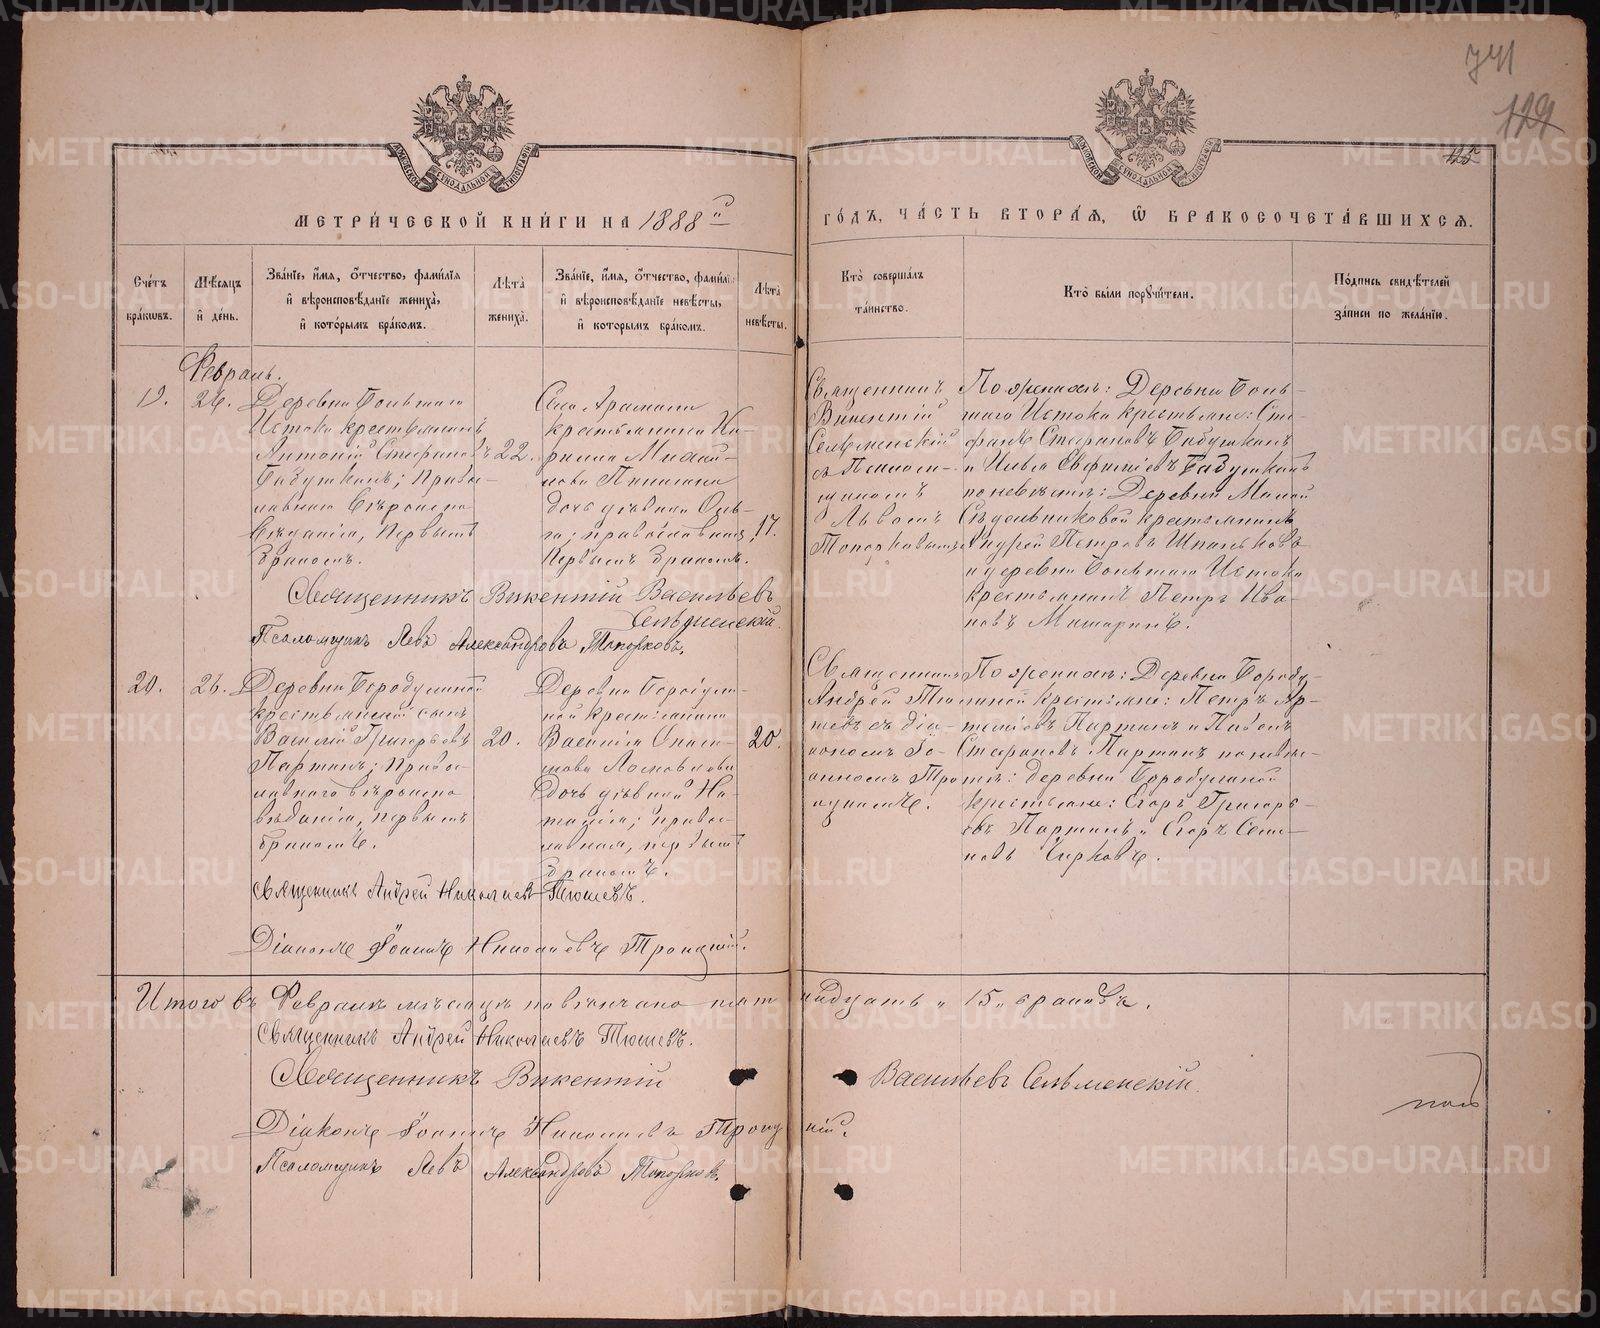 741
129
125
МЕТРИ́ЧЕСКОЙ КНИ́ГИ НА 1888й
ГО́ДЪ, ЧА́СТЬ ВТОРА́Я, Ѡ БРАКОСОЧЕТА́ВШИХСЯ.
Сче́тъ бра́кѡвъ.
Мѣ́сяцъ и де́нь.
Зва́нїе, и́мя, ѻ́тчество, фами́лїя и҆ вѣроисповѣ́данїе жениха̀, и҆ кото́рымъ бра́комъ.
Лѣ́та жениха̀.
Зва́нїе, и́мя, ѻ́тчество, фами́лїя и҆ вѣроисповѣ́данїе невѣ́сты, и҆ кото́рымъ бра́комъ.
Лѣ́та невѣ́сты.
Кто̀ соверша́лъ та́инство.
Кто̀ бы́ли порꙋчи́тели.
По́дпись свидѣ́телей за́писи по жела́нїю.
Февраль.
19.
26.
Деревни Большаго
Истока крестьянинъ
Антоній Стефановъ
Бабушкинъ; Право-
славнаго вѣроиспо-
вѣданія, первымъ
бракомъ.
22.
Села Арамили
крестьянина Ки-
рилла Михаи-
лова
дочь дѣвица Оль-
га; православная,
первымъ бракомъ.
17.
Священникъ
Викентій
Сельменскій
съ Псалом-
щикомъ
Львомъ
Топорковымъ
По женихѣ: Деревни Боль-
шаго Истока крестьяне: Сте-
фанъ Стефановъ Бабушкинъ
и Илья Евфиміевъ Бабушкинъ
по невѣстѣ: Деревни Малой
Сѣдельниковой крестьянинъ
Андрей Петровъ Шпаньковъ
и деревни Большаго Истока
крестьянинъ Петръ Ива-
новъ Машаринъ.
Священникъ Викентій Васильевъ
Сельменскій.
Псаломщикъ Левъ Александровъ Топорковъ.
20.
26.
Деревни Бородулиной
крестьянскій сынъ
Василій Григорьевъ
Паркинъ; Право-
славнаго вѣроиспо-
вѣданія, первымъ
бракомъ.
20.
Деревни Бородули-
ной крестьянина
Василія
дочь дѣвица На-
талія; право-
славная, первымъ
бракомъ.
20.
Священникъ
Андрей Тю-
шевъ съ діа-
кономъ Іо-
анномъ Тро-
ицкимъ.
По женихѣ: Деревни Бороду-
линой крестьяне: Петръ Ар-
Паркинъ и Павелъ
Стефановъ Паркинъ по невѣ-
стѣ: деревни Бородулиной
крестьяне: Егоръ Григорь-
евъ Паркинъ и Егоръ Семе-
новъ Чирковъ.
Священникъ Андрей Николаевъ Тюшевъ.
Діаконъ Іоаннъ Николаевъ Троицкій.
Итого въ Февралѣ мѣсяцѣ повѣнчано пятнадцать „15„ браковъ.
Священникъ Андрей Николаевъ Тюшевъ.
Священникъ Викентій Васильевъ Сельменскій.
Діаконъ Іоаннъ Николаевъ Троицкій.
Псаломщикъ Левъ Александровъ Топорковъ.
METRIKI.GASO-URAL.RU